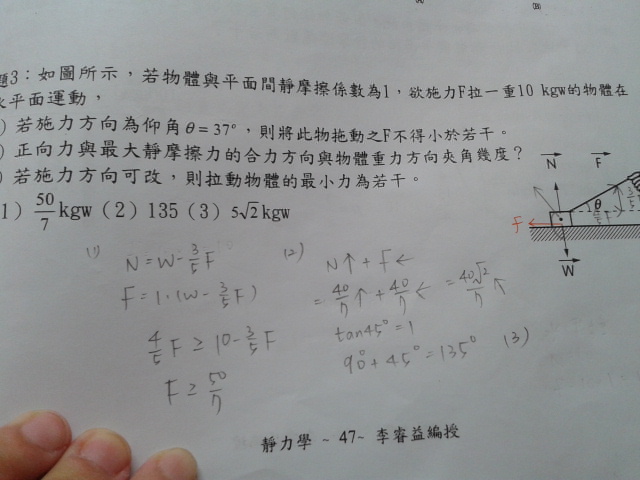 題3：如圖所示，若物體與平面間靜摩擦係數為1，欲施力F拉一重10 kgw的物體在
水平面運動，
) 若施力方向為仰角θ＝37°，則將此物拖動之F不得小於若干。
) 正向力與最大靜摩擦力的合力方向與物體重力方向夾角幾度？
) 若施力方向可改，則拉動物體的最小力為若干。
1) 50/7 kgw (2) 135 (3) 5√2 kgw
N F
θ
F
W
(1)
N=W-3/5F
F=1·(W-3/5F)
4/5F ≥ 10-3/5F
F ≥ 50/7
(2)
N↑+F←
=40/7↑+40/7← =40√2/7↖
tan45°=1
90°+45°=135°
(3)
靜力學 ~ 47~ 李睿益編授